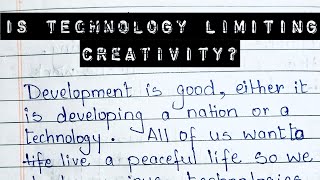 IS TECHNOLOGY LIMITING
CREATIVITY?
Development is good, either it
is developing a nation or a
technology. All of us want to
life live a peaceful life so we
technologies